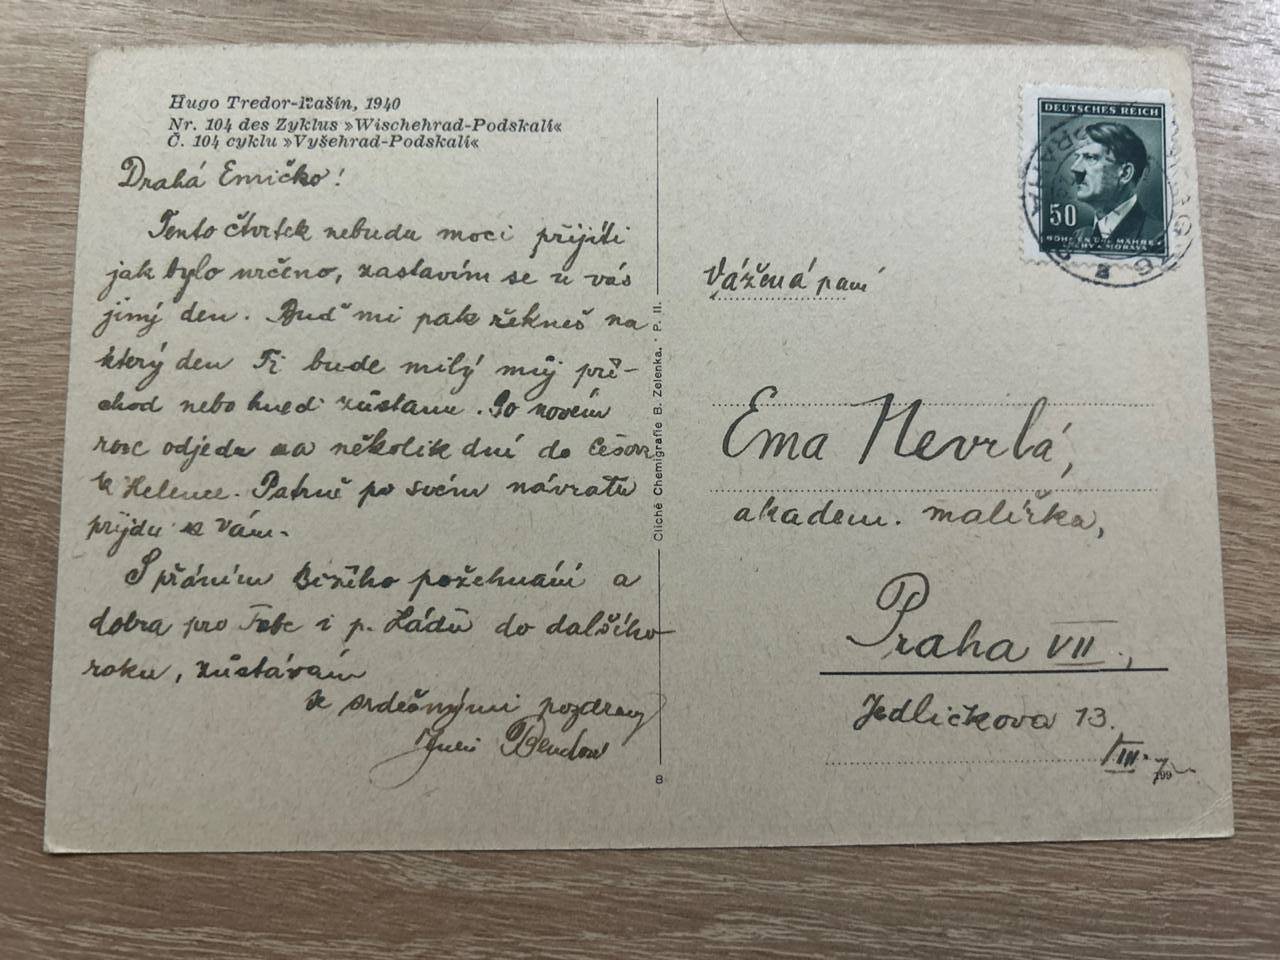 Hugo Tredor-Rašín, 1940
Nr. 104 des Zyklus »Wischehrad-Podskalí«
Č. 104 cyklu »Vyšehrad-Podskalí«
Drahá Emičko!
Tento čtvrtek nebudu moci přijíti
jak bylo určeno, zastavím se u vás
jiný den. Buď mi pak řekneš na
který den Ti bude milý můj pří-
chod nebo hned zůstanu. Po novém
roce odjedu na několik dní do
k Helence. Patrně po svém návratu
přijdu k Vám.
S přáním Božího požehnání a
dobra pro Tebe i p. Ládů do dalšího
roku, zůstávám
se srdečnými pozdravy
Cliché Chemigrafie B. Zelenka, P. II.
8
DEUTSCHES REICH
50
BÖHMEN UND MÄHREN
ČECHY A MORAVA
Vážená paní
Ema Nevrlá,
akadem. malířka,
Praha VII.,
Jedličkova 13.